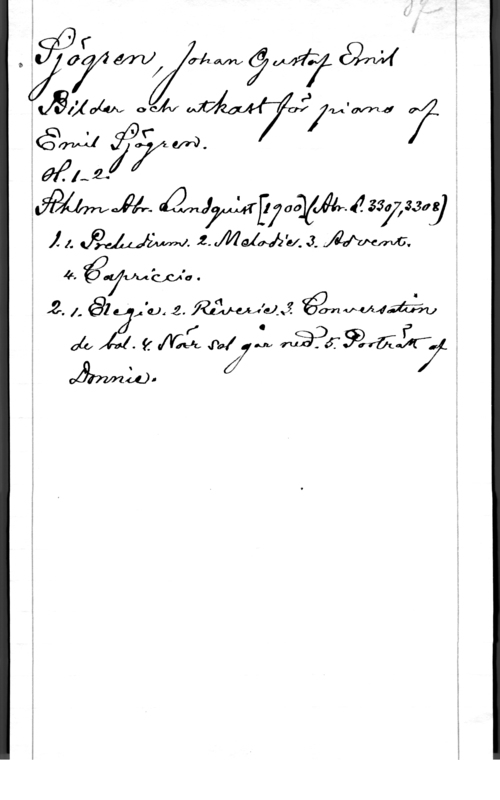 Sjögren, Johan Gustaf Emil
Bilder och utkast för piano af
Emil Sjögren.
H. 1-2.
Sthlm Abr. Lundquist [1900] (Abr. L. 3307,3308)
1. 1. Preludium. 2. Melodie. 3. Advent.
4. Capriccio.
2. 1. Elegie. 2. Rêverie. 3. Conversation
de bal. 4. När sol går ned. 5. Porträtt af
Annie.